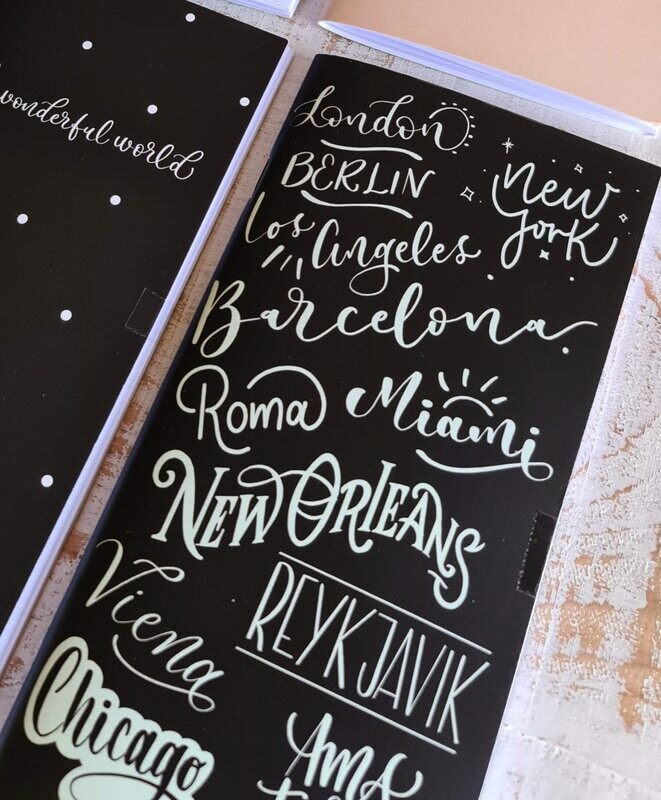 wonderful world
London
BERLIN
New
York
Los Angeles
Barcelona
Roma
Miami
NEW ORLEANS
Viena
REYKJAVIK
Chicago
AMS